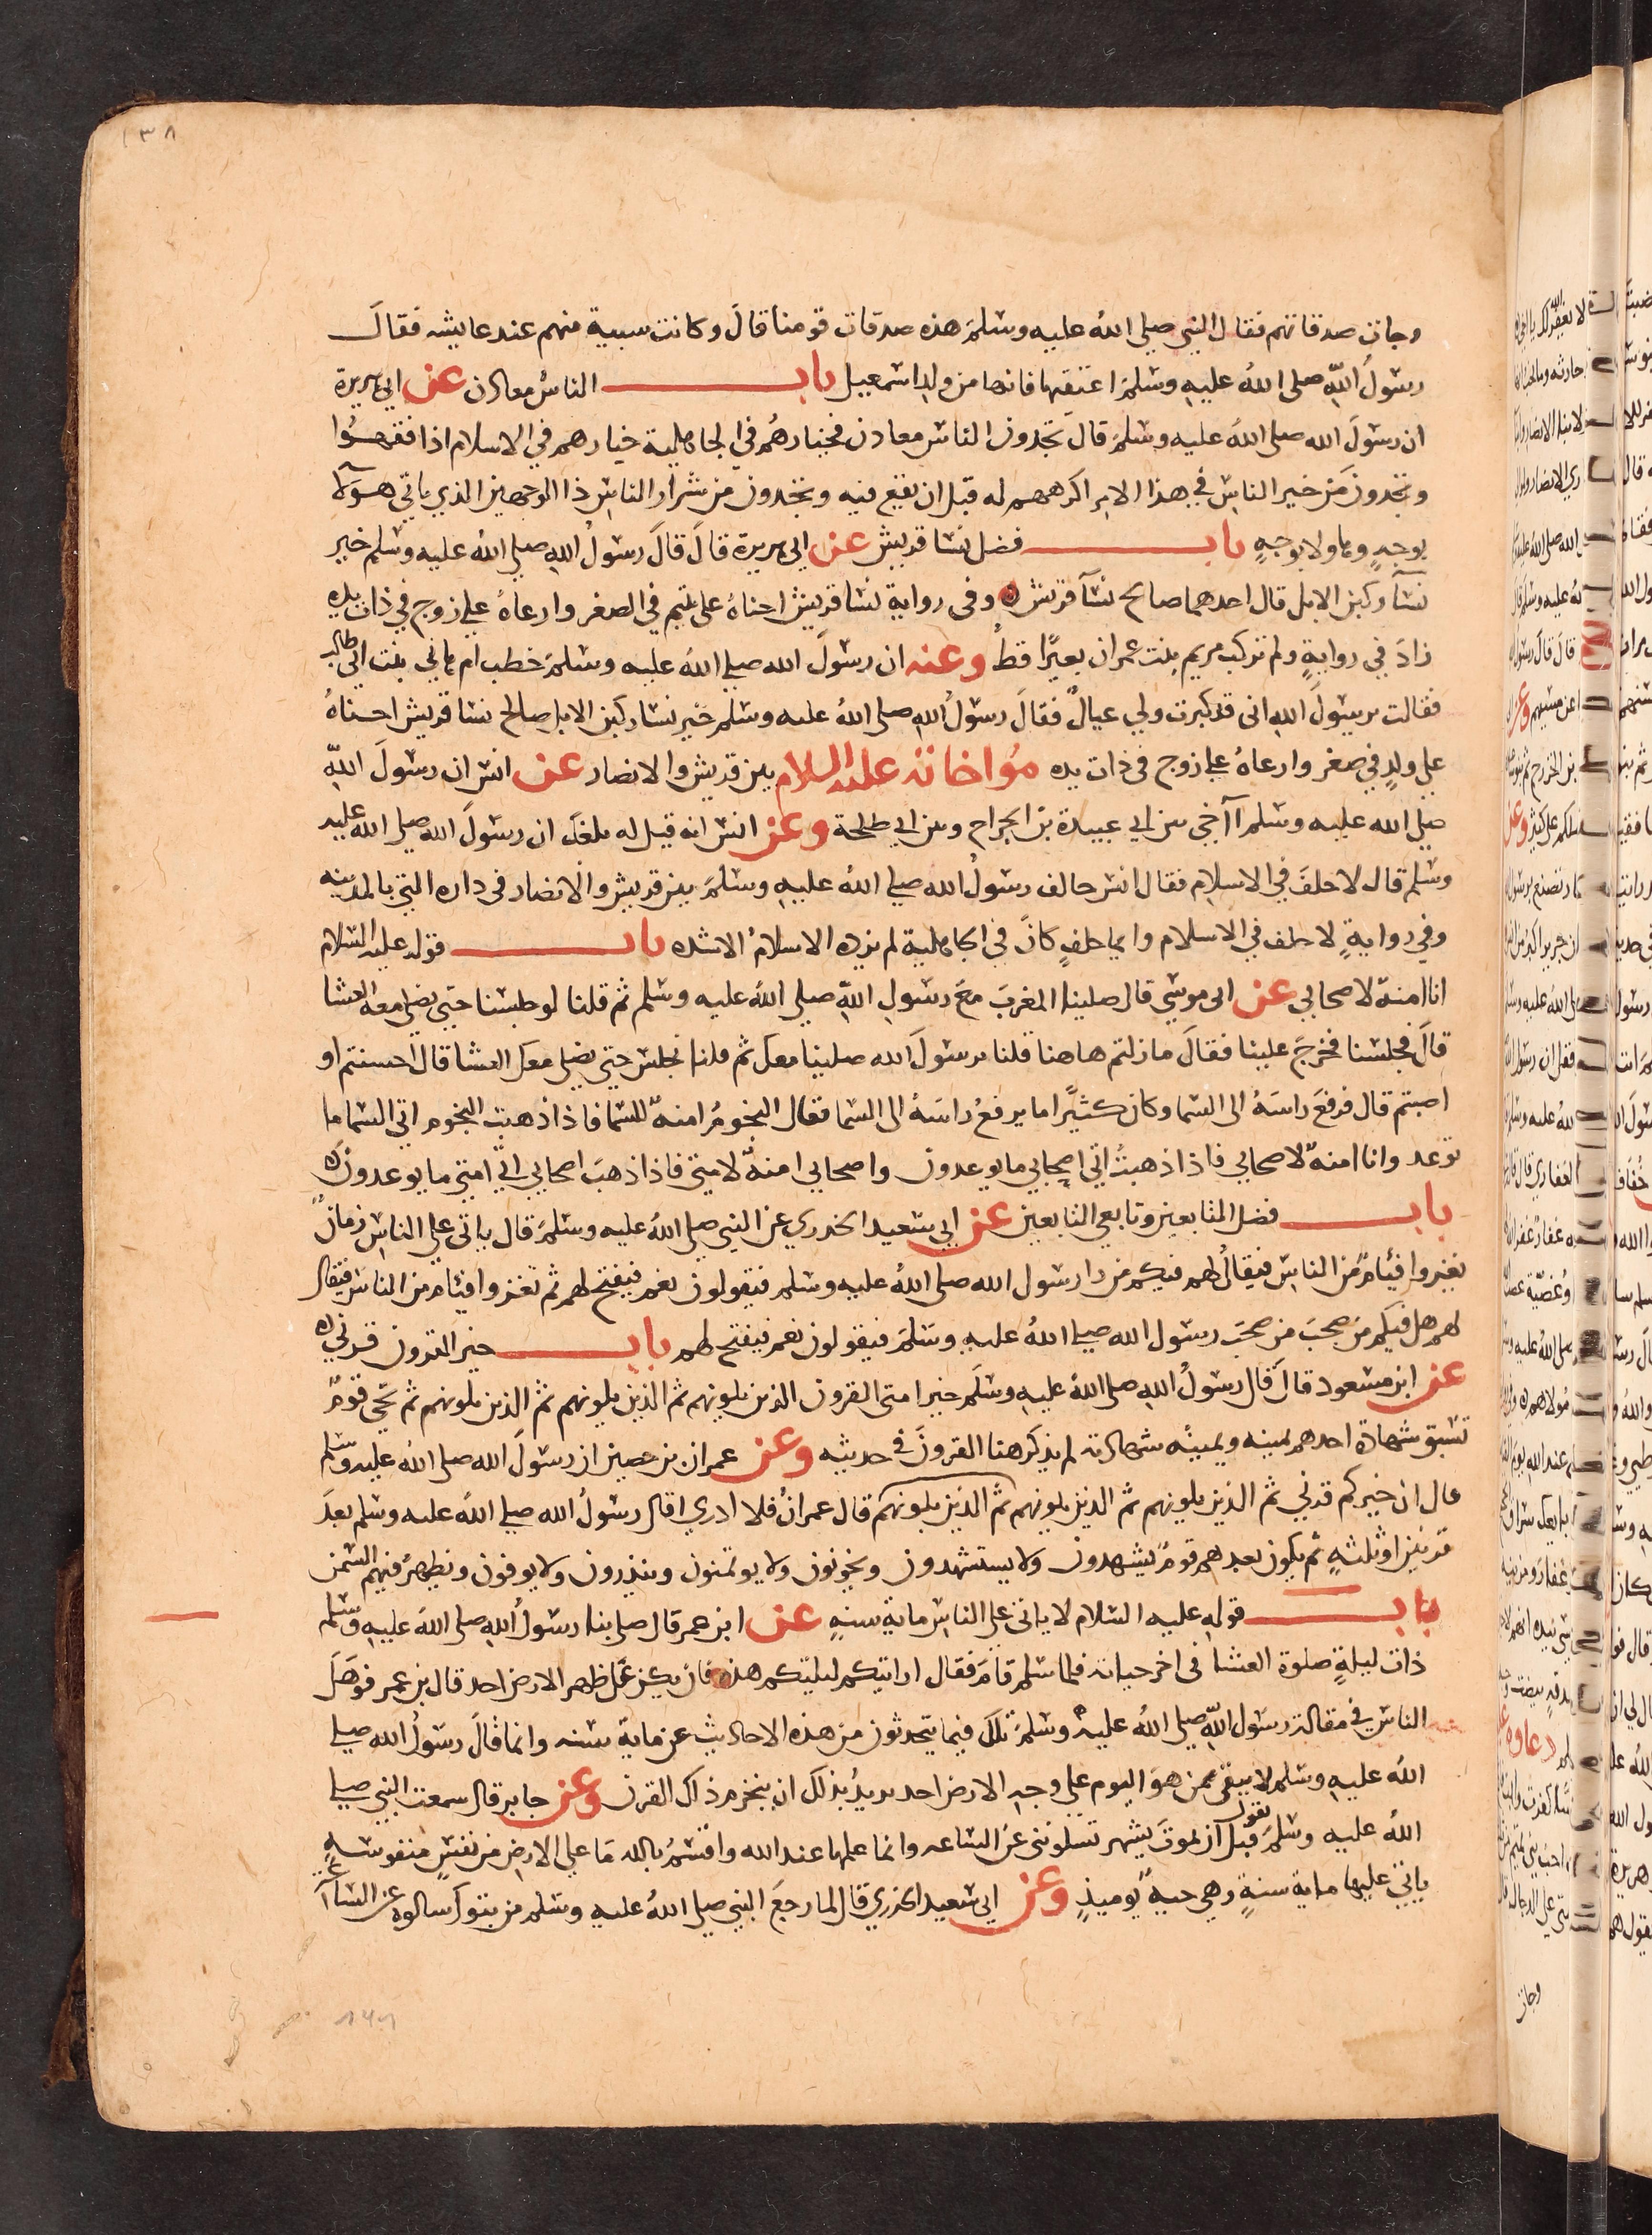 ١٣٨
وجات صدقاتهم فقال النبي صلى الله عليه وسلم هذه صدقات قومنا قال وكانت سبية منهم عند عايشه فقال
رسول الله صلى الله عليه وسلم اعتقيها فانها من ولد اسمعيل باب الناس معادن عن ابي هريرة
ان رسول الله صلى الله عليه وسلم قال تجدون الناس معادن فخيارهم في الجاهلية خيارهم في الاسلام اذا فقهوا
وتجدون من خير الناس في هذا الامر اكرههم له قبل ان يقع فيه وتجدون من شرار الناس ذا الوجهين الذي ياتي هولا
بوجه وهاولا بوجه باب فضل نسا قريش عن ابي هريرة قال قال رسول الله صلى الله عليه وسلم خير
نسآ ركبن الابل قال احدهما صالح نسآ قريش وفي رواية نسا قريش احناه على يتيم في الصغر وارعاه على زوج في ذات يده
زاد في رواية ولم تركب مريم بنت عمران بعيرا قط وعنه ان رسول الله صلى الله عليه وسلم خطب ام هاني بنت ابي طالب
فقالت يرسول الله اني قد كبرت ولي عيال فقال رسول الله صلى الله عليه وسلم خير نسا ركبن الابل صالح نسا قريش احناه
على ولد في صغر وارعاه على زوج في ذات يده مواخاته عليه السلام بين قريش والانصار عن انس ان رسول الله
صلى الله عليه وسلم آخي بين ابي عبيدة بن الجراح وبين ابي طلحة وعن انس انه قيل له بلغك ان رسول الله صلى الله عليه
وسلم قال لا حلف في الاسلام فقال انس حالف رسول الله صلى الله عليه وسلم بين قريش والانصار في داره التي بالمدينه
وفي رواية لا حلف في الاسلام وايما حلف كان في الجاهلية لم يزده الاسلام الا شده باب قوله عليه السلام
انا امنة لاصحابي عن ابي موسى قال صلينا المغرب مع رسول الله صلى الله عليه وسلم ثم قلنا لو جلسنا حتى نصلي معه العشا
قال فجلسنا فخرج علينا فقال ما زلتم هاهنا قلنا يرسول الله صلينا معك ثم قلنا نجلس حتى نصلي معك العشا قال احسنتم او
اصبتم قال فرفع راسه الى السما وكان كثيرا ما يرفع راسه الى السما فقال النجوم امنة للسما فاذا ذهبت النجوم اتى السما ما
توعد وانا امنة لاصحابي فاذا ذهبت اتى اصحابي ما يوعدون واصحابي امنة لامتي فاذا ذهب اصحابي اتى امتي ما يوعدون
باب فضل التابعين وتابعي التابعين عن ابي سعيد الخدري عن النبي صلى الله عليه وسلم قال ياتي على الناس زمان
يغزوا فئام من الناس فيقال لهم فيكم من را رسول الله صلى الله عليه وسلم فيقولون نعم فيفتح لهم ثم تغزوا فئام من الناس فيقال
لهم هل فيكم من صحب من صحب رسول الله صلى الله عليه وسلم فيقولون نعم فيفتح لهم باب خير القرون قرني
عن ابن مسعود قال قال رسول الله صلى الله عليه وسلم خير امتي القرون الذين يلونهم ثم الذين يلونهم ثم الذين يلونهم ثم تجي قوم
تسبق شهادة احدهم يمينه ويمينه شهادته لم يذكر هنا القرون في حديثه وعن عمران بن حصين ان رسول الله صلى الله عليه وسلم
قال ان خيركم قرني ثم الذين يلونهم ثم الذين يلونهم ثم الذين يلونهم قال عمران فلا ادري اقال رسول الله صلى الله عليه وسلم بعد
قرنين او ثلثه ثم يكون بعدهم قوم يشهدون ولا يستشهدون ويخونون ولا يوتمنون وينذرون ولا يوفون ويظهر فيهم السمن
باب قوله عليه السلام لا ياتي على الناس ماية سنة عن ابن عمر قال صلى بنا رسول الله صلى الله عليه وسلم
ذات ليلة صلوة العشا في اخر حياته فلما سلم قام فقال ارايتكم ليلتكم هذه فان يكن على ظهر الارض احد قال بن عمر فوهل
الناس في مقالة رسول الله صلى الله عليه وسلم تلك فيما يتحدثون من هذه الاحاديث عن ماية سنه وانما قال رسول الله صلى
الله عليه وسلم لا يبقى ممن هو اليوم على وجه الارض احد يريد بذلك ان ينخرم ذاك القرن وعن جابر قال سمعت النبي صلى
الله عليه وسلم يقول قبل ان يموت بشهر تسلوني عن الساعه وانما علمها عند الله واقسم بالله ما على الارض من نفس منفوسة
ياتي عليها ماية سنة وهي حية يوميذ وعن ابي سعيد الخدري قال لما رجع النبي صلى الله عليه وسلم من تبوك سالوه عن السا